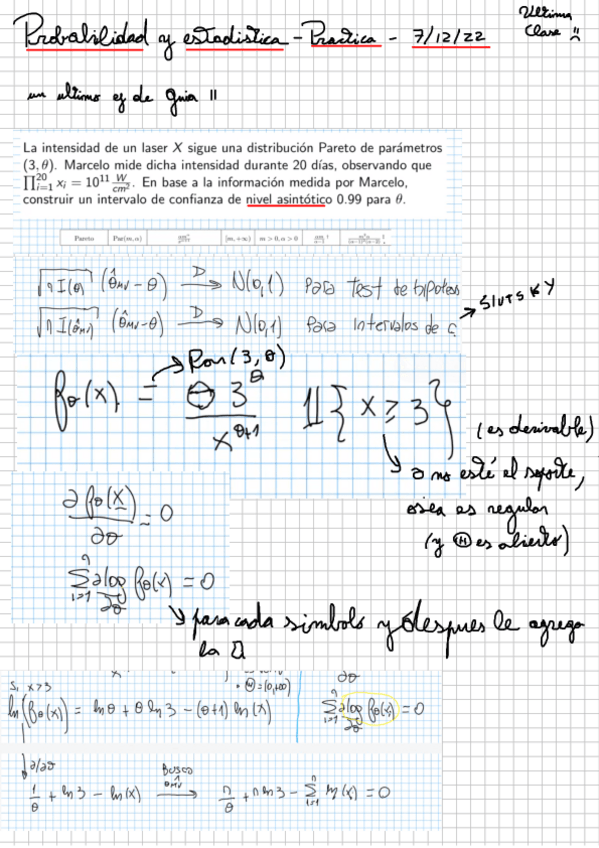 Probabilidad y estadistica - Practica - 7/12/22
Ultima
Clase
un ultimo ej de Guia 11
La intensidad de un laser X sigue una distribución Pareto de parámetros
(3, θ). Marcelo mide dicha intensidad durante 20 días, observando que
∏_{i=1}^{20} x_i = 10^{11} W/cm². En base a la información medida por Marcelo,
construir un intervalo de confianza de nivel asintótico 0.99 para θ.
Pareto Par(m, α) [m, +∞) m > 0, α > 0
√(n I(θ)) (θ̂_MV - θ) →D N(0,1) para test de hipotesis
√(n I(θ̂_MV)) (θ̂_MV - θ) →D N(0,1) para intervalos de c
→ SLUTSKY
Par(3, θ)
f_θ(x) = θ 3^θ / x^{θ+1} 1{x ≥ 3}
(es derivable)
θ no esté el soporte,
osea es regular
(y Θ es abierto)
∂ f_θ(x) / ∂θ = 0
∑_{i=1}^{n} ∂ log / ∂θ f_θ(x) = 0
para cada simbolo y despues le agrego
la
Si x>3
• Θ = (0,+∞)
∂θ
ln(f_θ(x)) = ln θ + θ ln 3 - (θ+1) ln(x)
∑_{i=1}^{n} ∂ log / ∂θ f_θ(x_i) = 0
∂/∂θ
Busco θ̂_MV
1/θ + ln 3 - ln(x) → n/θ + n ln 3 - ∑_{i=1}^{n} ln(x) = 0